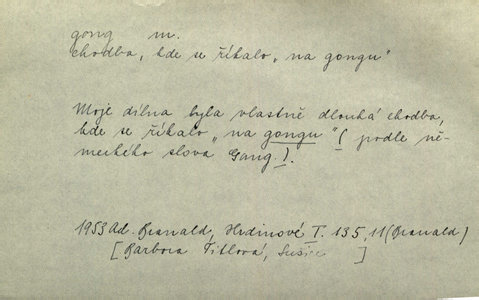 gong m.
chodba, kde se říkalo „na gongu"
Moje dílna byla vlastně dlouhá chodba,
kde se říkalo „na gongu" ( podle ně-
meckého slova Gang.).
1953 Ad. Branald, Hrdinové I. 135, 11 (Branald)
[Barbora Titlová, Sušice ]